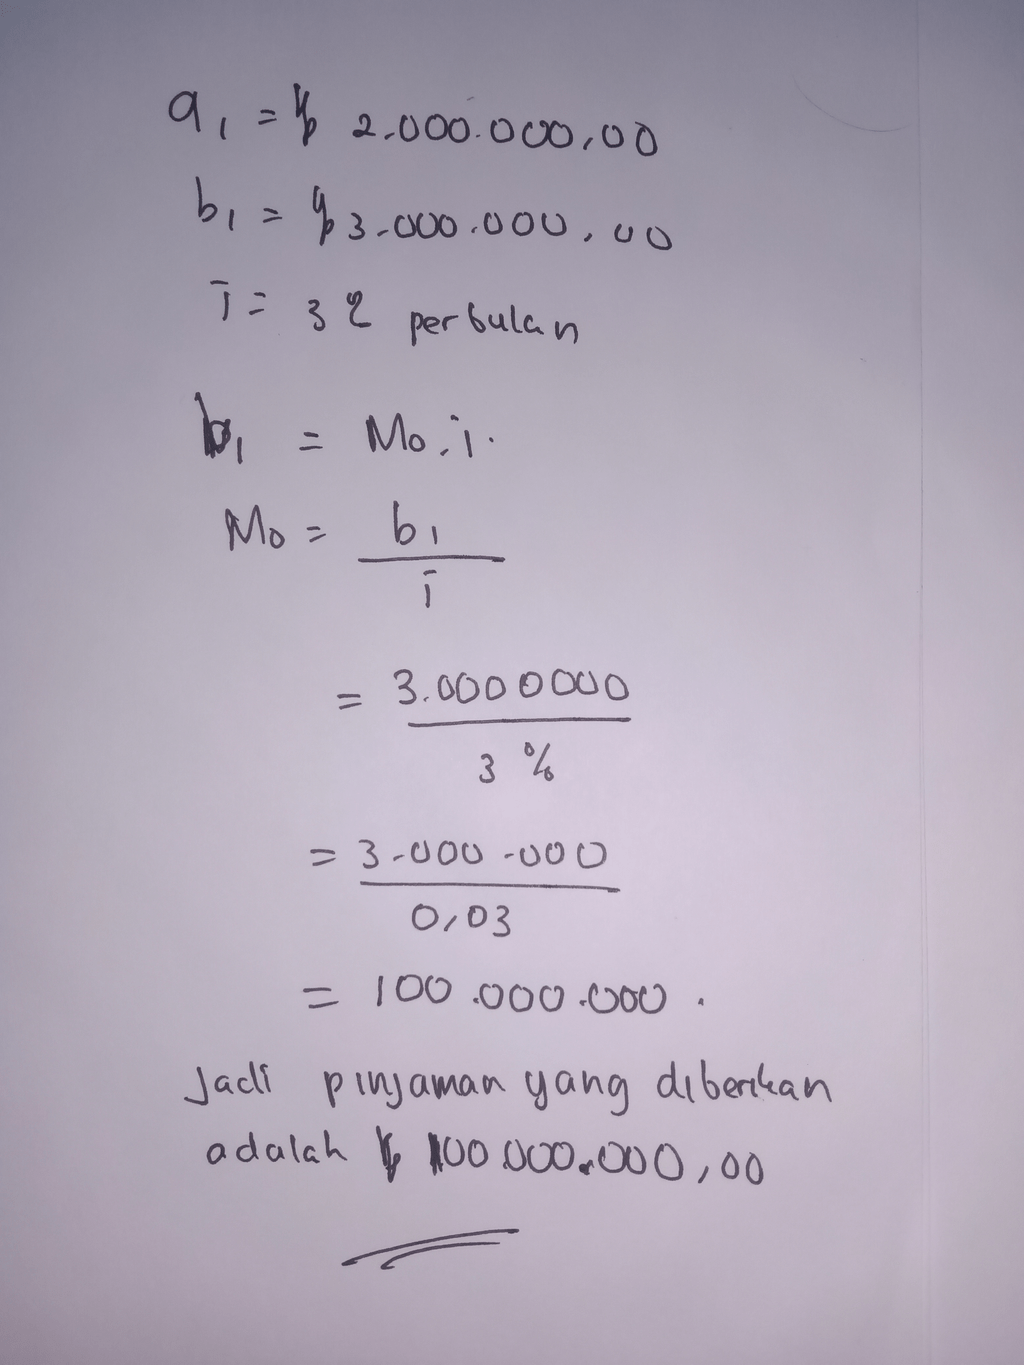 a₁ = Rp 2.000.000,00
b₁ = Rp 3.000.000,00
i = 3% perbulan
b₁ = Mo . i.
Mo = b₁
i
= 3.0000000
3 %
= 3.000.000
0,03
= 100.000.000.
Jadi pinjaman yang diberikan
adalah Rp 100.000.000,00